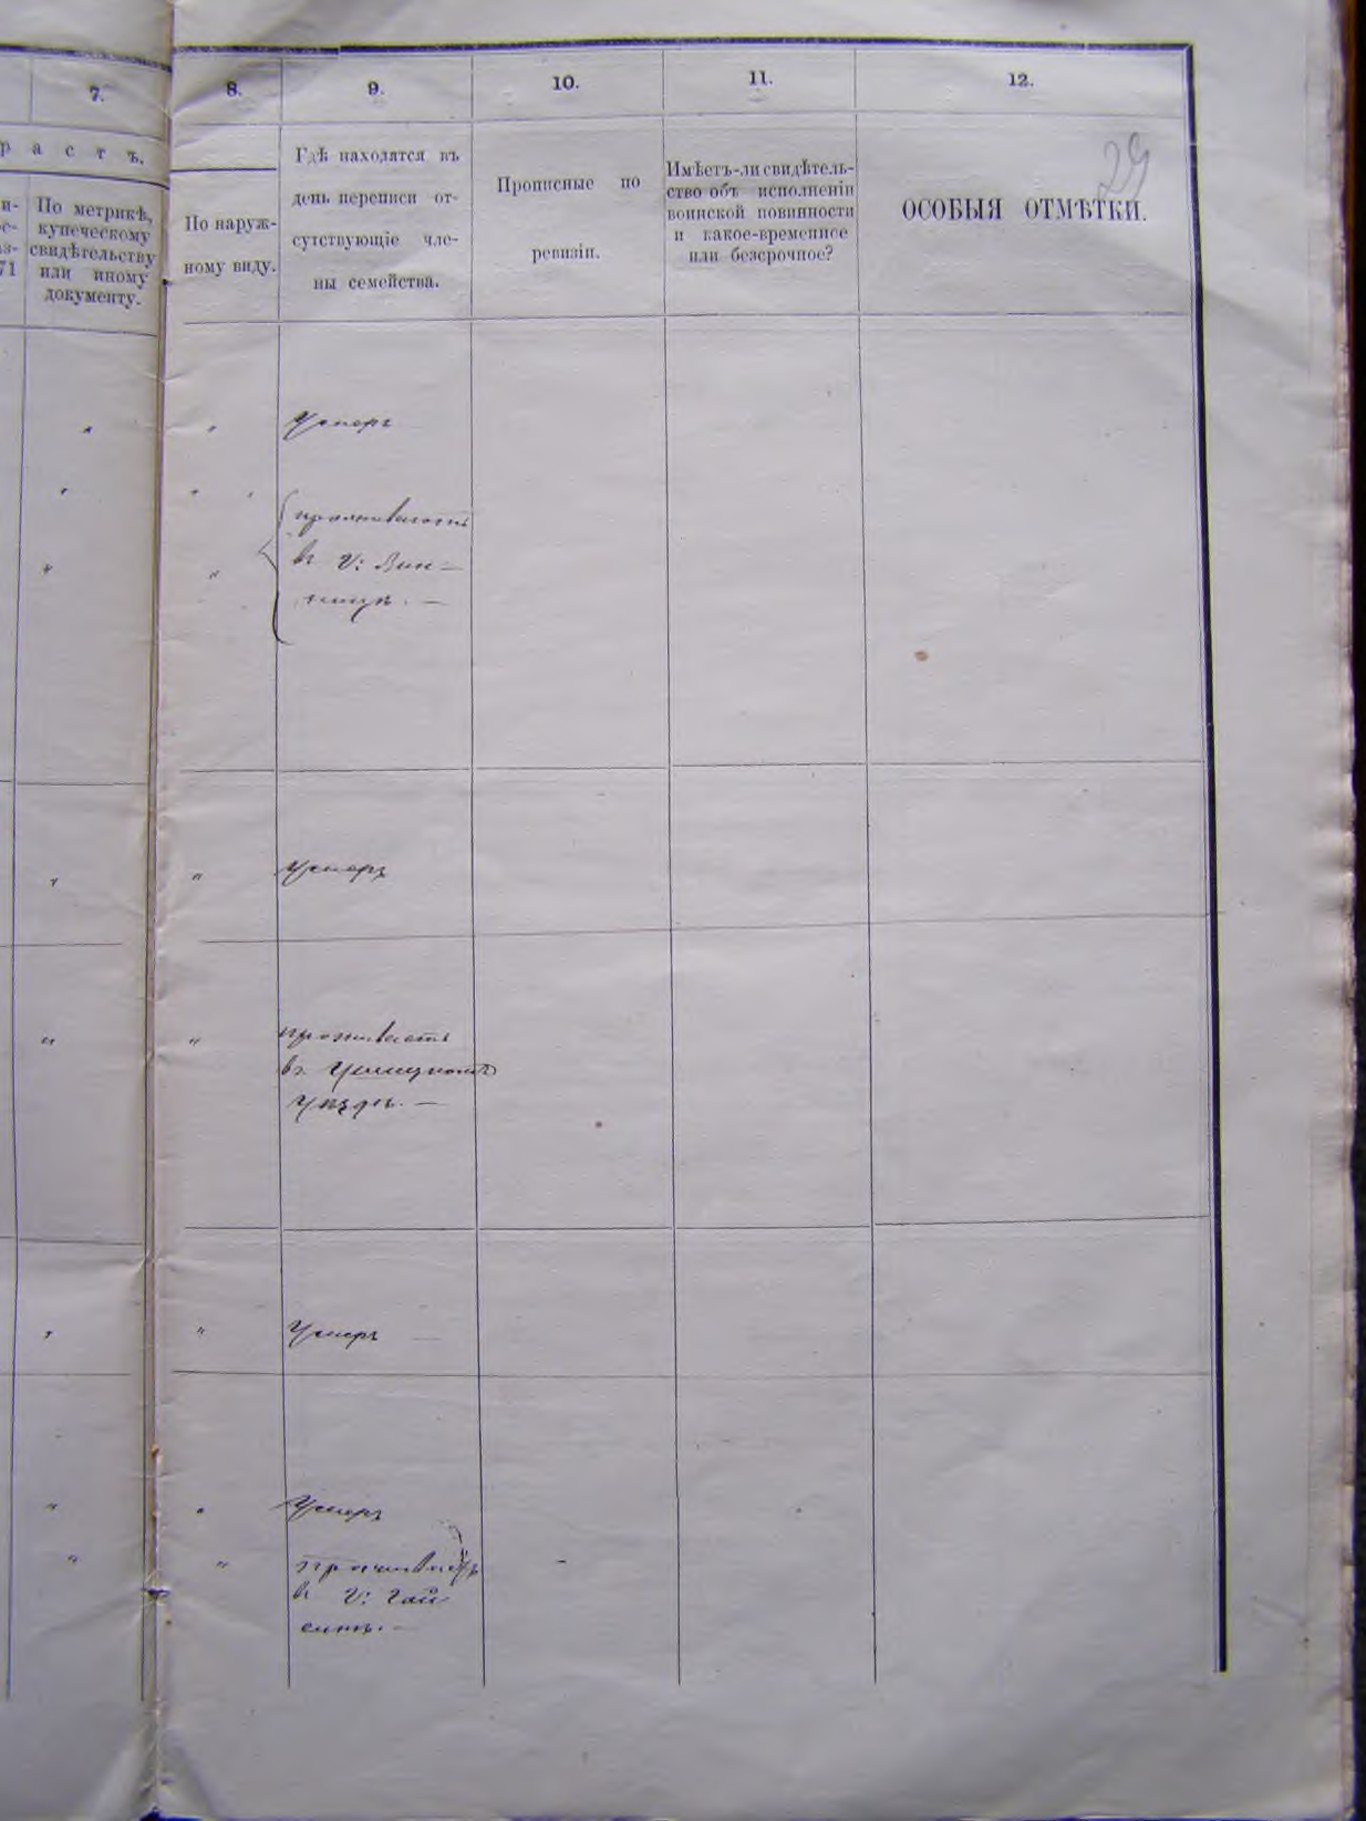 7.
8.
9.
10.
11.
12.
29
р а с т ъ.
и-
ос-
аз-
71
По метрикѣ,
купеческому
свидѣтельству
или иному
документу.
По наруж-
ному виду.
Гдѣ находятся въ
день переписи от-
сутствующіе чле-
ны семейства.
Прописные по
ревизіи.
Имѣетъ-ли свидѣтель-
ство объ исполненіи
воинской повинности
и какое-временное
или безсрочное?
ОСОБЫЯ ОТМѢТКИ.
" " Умеръ
" "
проживаютъ
" " въ г: Вин-
ницѣ. —
" " Умеръ
" " проживаетъ
въ Ушицкомъ
уѣздѣ. —
" " Умеръ
" " Умеръ
" " проживаетъ
въ г: Гай
синѣ. —